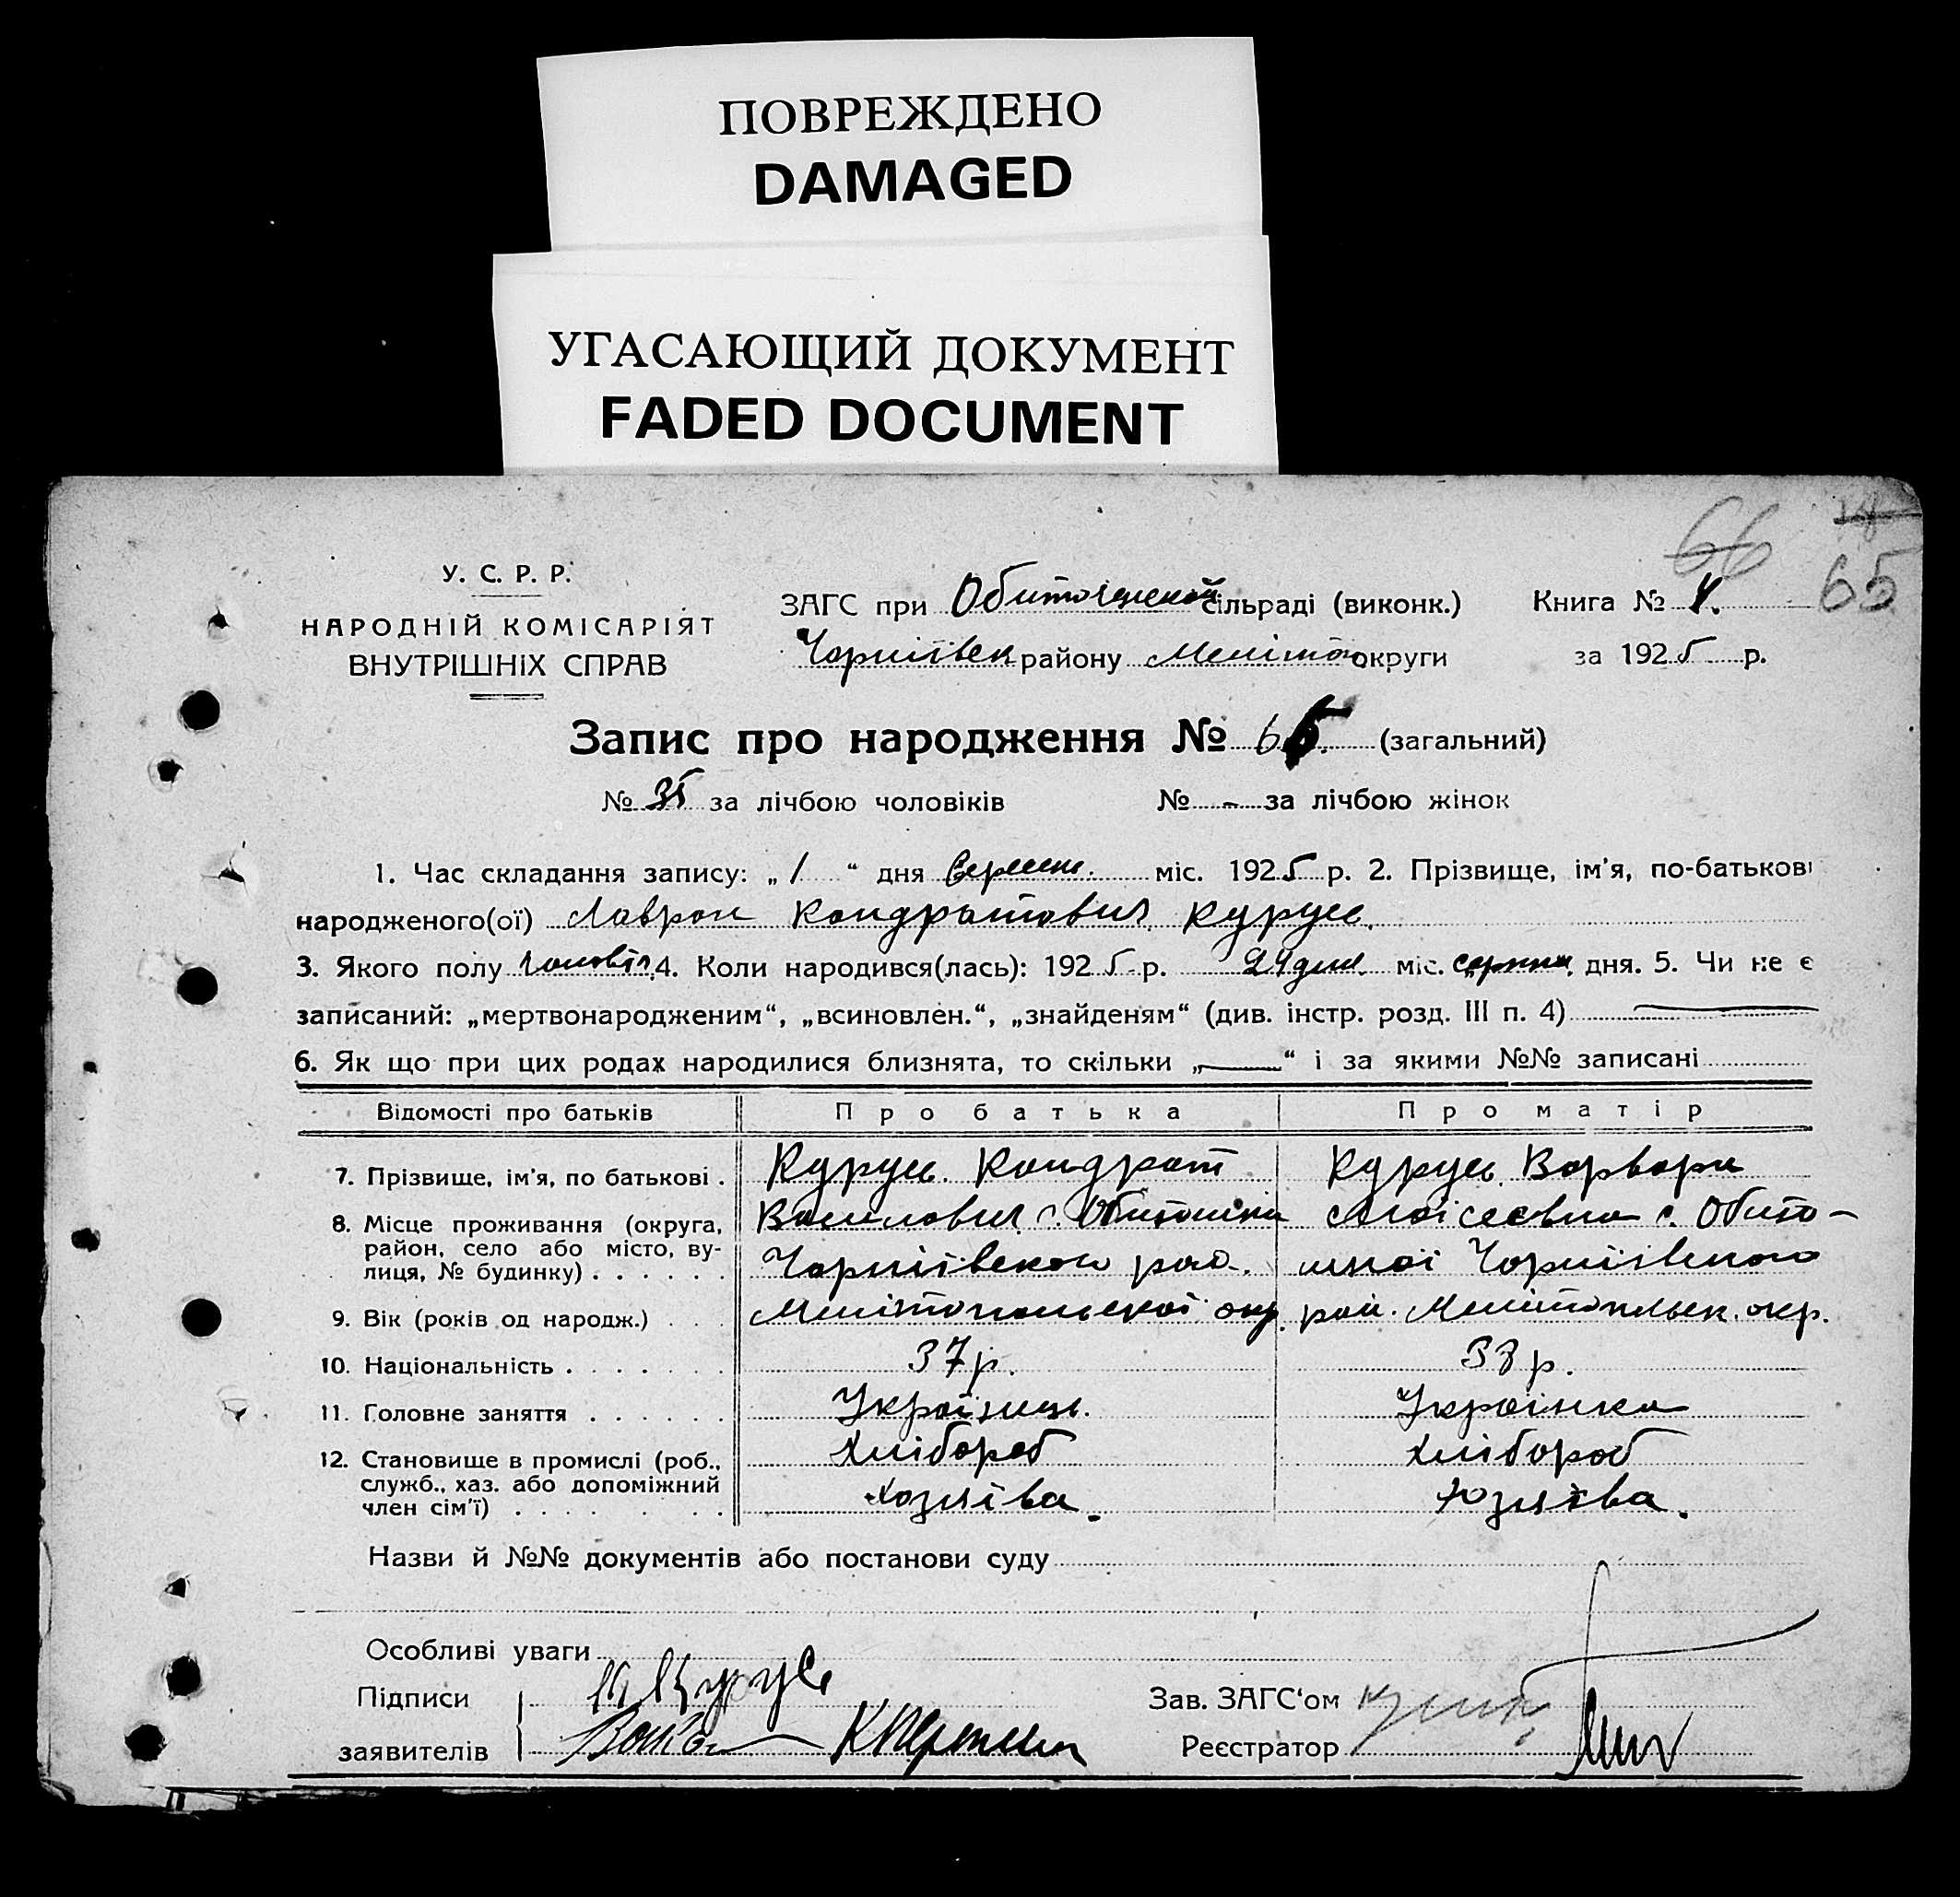 ПОВРЕЖДЕНО
DAMAGED
УГАСАЮЩИЙ ДОКУМЕНТ
FADED DOCUMENT
66
65
У. С. Р. Р.
НАРОДНІЙ КОМІСАРІЯТ
ВНУТРІШНІХ СПРАВ
ЗАГС при Обиточенской сільраді (виконк.) Книга №
району Меліто округи за 1925 р.
Запис про народження № 65. (загальний)
№ 35 за лічбою чоловіків № - за лічбою жінок
1. Час складання запису: „1“ дня Вересня. міс. 1925 р. 2. Прізвище, ім'я, по-батькові
народженого(ої) Лаврон Кондратович Курусь.
3. Якого полу чоловіч. 4. Коли народився(лась): 1925 р. 24 дня. міс. серпня. дня. 5. Чи не є
записаний: „мертвонародженим“, „всиновлен.“, „знайденям“ (див. інстр. розд. III п. 4)
6. Як що при цих родах народилися близнята, то скільки „—“ і за якими №№ записані
Відомості про батьків Про батька Про матір
7. Прізвище, ім'я, по батькові . Курусь. Кондрат Курусь. Варвара
8. Місце проживання (округа, район, село або місто, вулиця, № будинку) . . . . . . Василович с. Обиточна Мойсеєвна с. Обито-
Чорніївского рай. шної Чорніївского
9. Вік (років од народж.) . . . Мелітопольскої окр. рай. Мелітопольск. окр.
10. Національність . . . . . . . 37 р. 38 р.
11. Головне заняття . . . . . . Українець. Українка
12. Становище в промислі (роб., Хлібороб Хлібороб
служб., хаз. або допоміжний
член сім'ї) . . . . . . . Хозяїва. Хозяїва.
Назви й №№ документів або постанови суду
Особливі уваги
Підписи Зав. ЗАГС'ом
заявителів Реєстратор